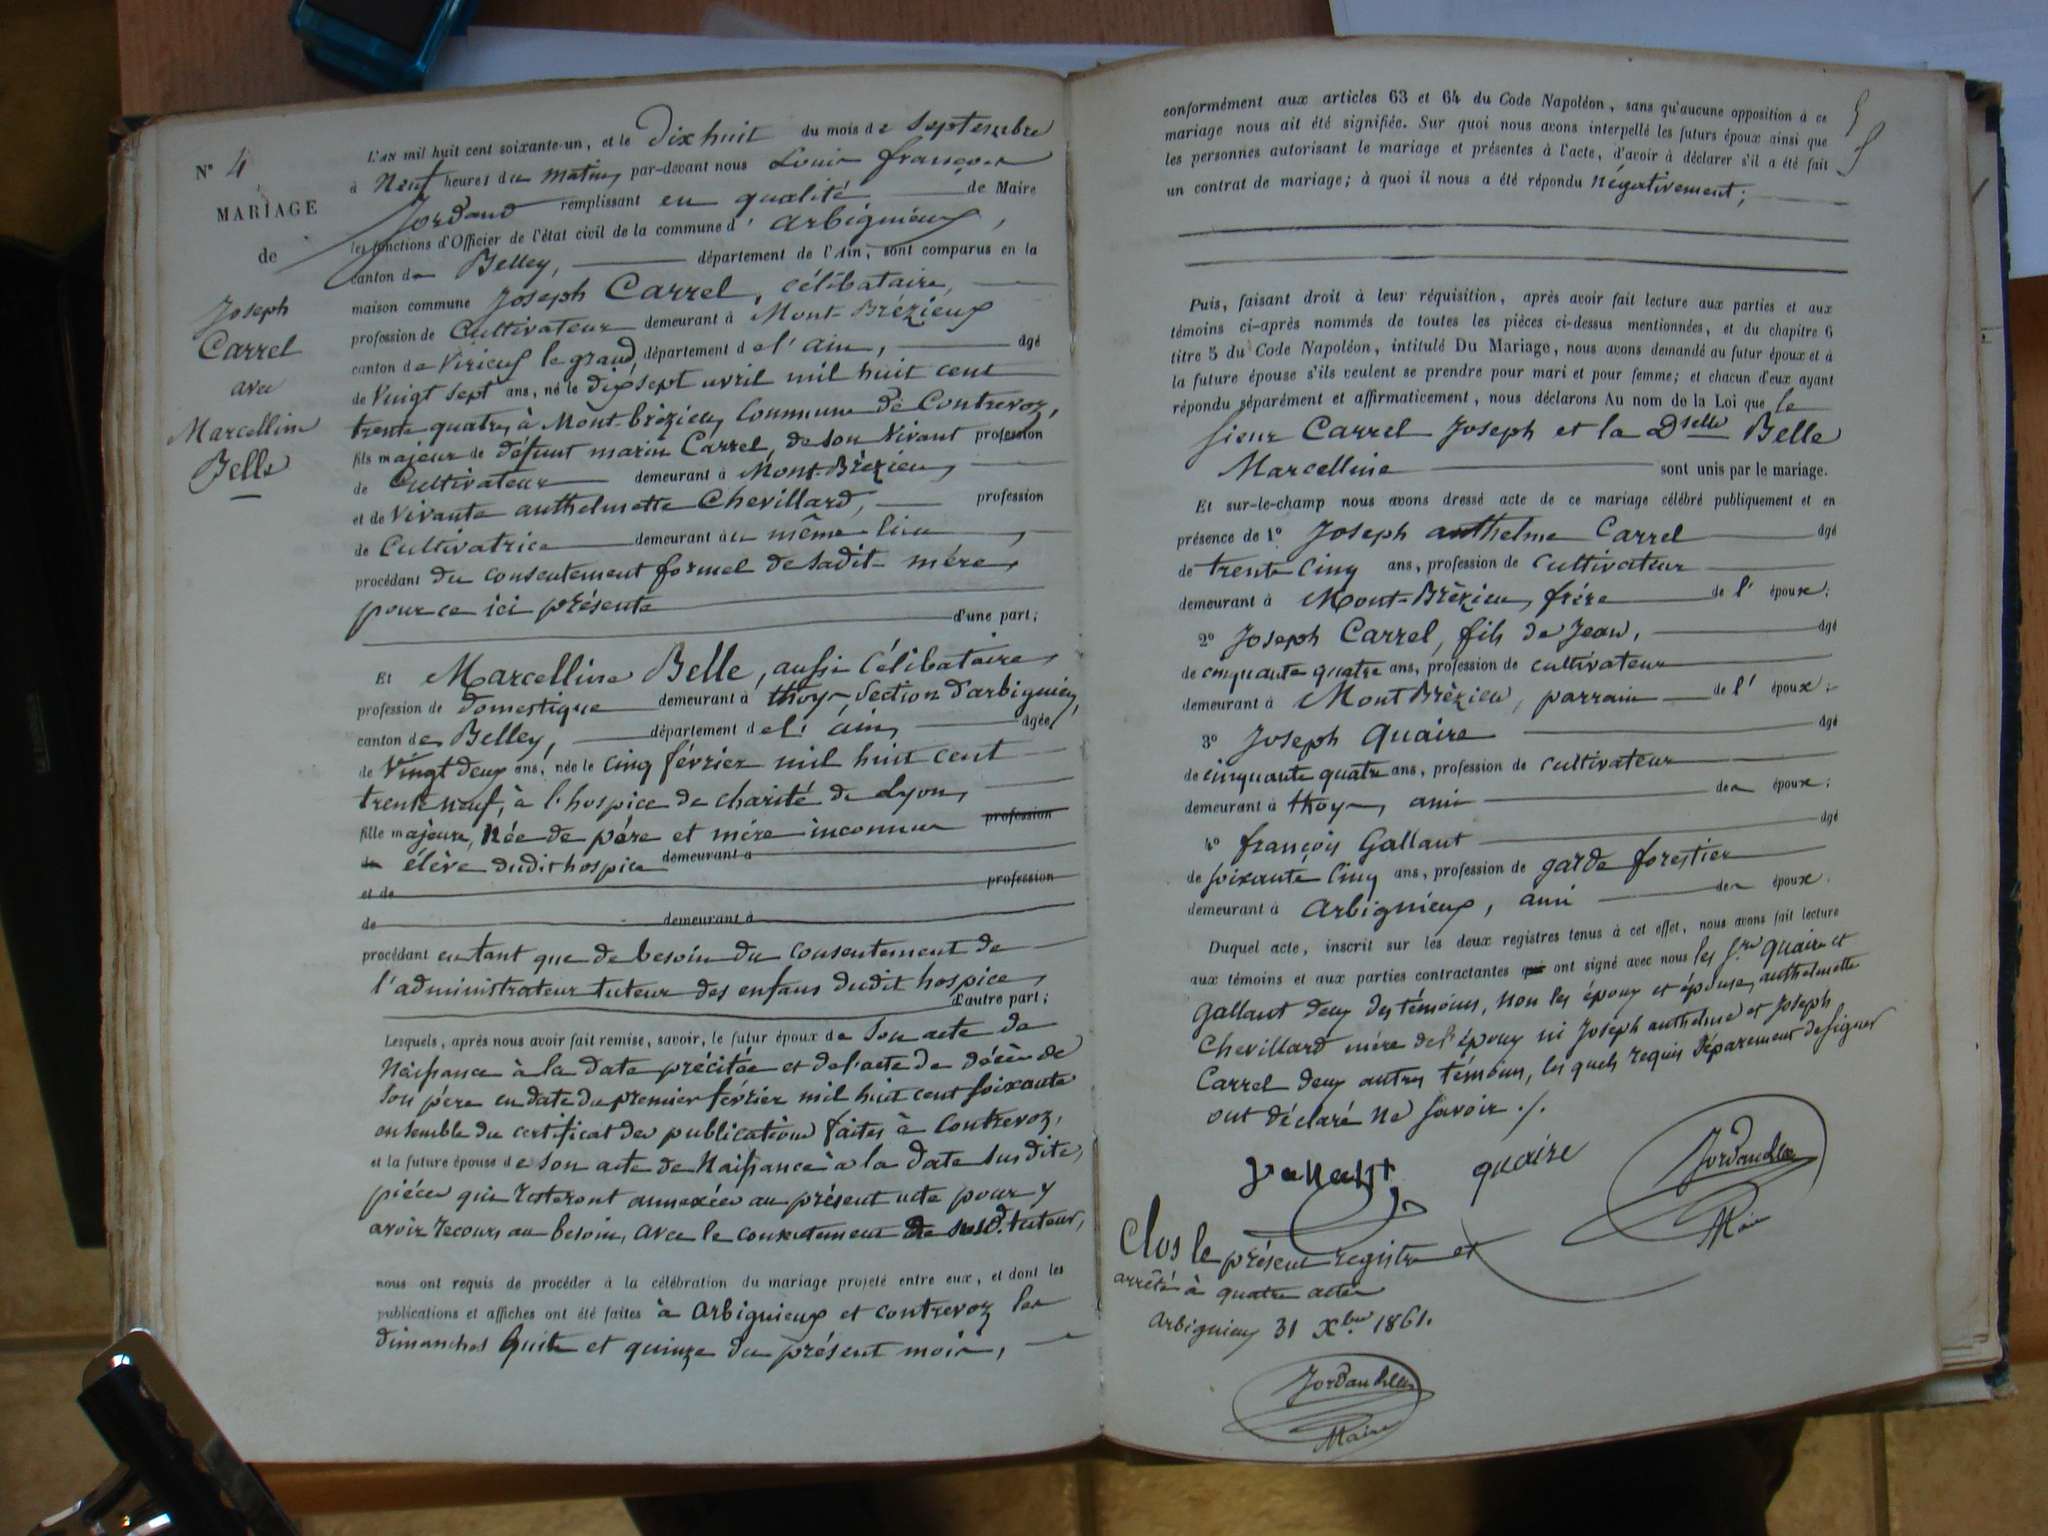 N° 4
MARIAGE
de
Joseph
Carrel
avec
Marcelline
Belle
L'an mil huit cent soixante-un, et le Dix huit du mois de Septembre
à Neuf heures du matin, par-devant nous Louis françois
Jordand remplissant en qualité de Maire
les fonctions d'Officier de l'état civil de la commune d' arbignieux,
canton de Belley, département de l'Ain, sont comparus en la
maison commune Joseph Carrel, célibataire,
profession de Cultivateur demeurant à Mont-Brézieux
canton de Virieux le grand, département de l'ain, âgé
de Vingt sept ans, né le dix sept avril mil huit cent
trente quatre, à Mont-brézieu, Commune de Contrevoz,
fils majeur de défunt marin Carrel, de son Vivant profession
de Cultivateur demeurant à Mont-Brézieu,
et de Vivante anthelmette Chevillard, profession
de Cultivatrice demeurant au même lieu,
procédant du consentement formel de sadit mère,
pour ce ici présente
d'une part;
Et Marcelline Belle, aussi Célibataire,
profession de domestique demeurant à thoy, Section d'arbignieu,
canton de Belley, département de l'ain, âgée
de Vingt deux ans, née le cinq février mil huit cent
trente neuf, à l'hospice de charité de Lyon,
fille majeure, Née de père et mère inconnus profession
de élève dudit hospice demeurant à
et de profession
de demeurant à
procédant en tant que de besoin du consentement de
l'administrateur tuteur des enfans dudit hospice,
d'autre part;
Lesquels, après nous avoir fait remise, savoir, le futur époux de Son acte de
Naissance à la date précitée et de l'acte de décès de
Son père en date du premier février mil huit cent soixante
ensemble du certificat des publications faites à Contrevoz,
et la future épouse de son acte de Naissance à la date sus dite,
pièces qui resteront annexées au présent acte pour y
avoir recours au besoin, avec le consentement de susd. tuteur,
nous ont requis de procéder à la célébration du mariage projeté entre eux, et dont les
publications et affiches ont été faites à arbignieux et contrevoz les
dimanches huit et quinze du présent mois,
conformément aux articles 63 et 64 du Code Napoléon, sans qu'aucune opposition à ce
mariage nous ait été signifiée. Sur quoi nous avons interpellé les futurs époux ainsi que
les personnes autorisant le mariage et présentes à l'acte, d'avoir à déclarer s'il a été fait
un contrat de mariage; à quoi il nous a été répondu négativement;
Puis, faisant droit à leur réquisition, après avoir fait lecture aux parties et aux
témoins ci-après nommés de toutes les pièces ci-dessus mentionnées, et du chapitre 6
titre 5 du Code Napoléon, intitulé Du Mariage, nous avons demandé au futur époux et à
la future épouse s'ils veulent se prendre pour mari et pour femme; et chacun d'eux ayant
répondu séparément et affirmativement, nous déclarons Au nom de la Loi que le
Sieur Carrel Joseph et la Dselle Belle
Marcelline sont unis par le mariage.
Et sur-le-champ nous avons dressé acte de ce mariage célébré publiquement et en
présence de 1° Joseph anthelme Carrel âgé
de trente Cinq ans, profession de Cultivateur
demeurant à Mont-Brézieu, frère de l' époux;
2° Joseph Carrel, fils de Jean, âgé
de cinquante quatre ans, profession de cultivateur
demeurant à Mont Brézieu, parrain de l' époux;
3° Joseph Quaire âgé
de cinquante quatre ans, profession de cultivateur
demeurant à thoy, ami des époux;
4° françois Gallant âgé
de soixante Cinq ans, profession de garde forestier
demeurant à arbignieux, ami des époux.
Duquel acte, inscrit sur les deux registres tenus à cet effet, nous avons fait lecture
aux témoins et aux parties contractantes qui ont signé avec nous les Srs Quaire et
Gallant deux des témoins, Non les époux et épouse, anthelmette
Chevillard mère de l'époux ni Joseph anthelme et Joseph
Carrel deux autres témoins, les quels requis séparément de signer
ont déclaré ne savoir ./.
quaire
Maire
Clos le présent registre et
arrêté à quatre actes
arbignieux 31 Xbre 1861.
Maire